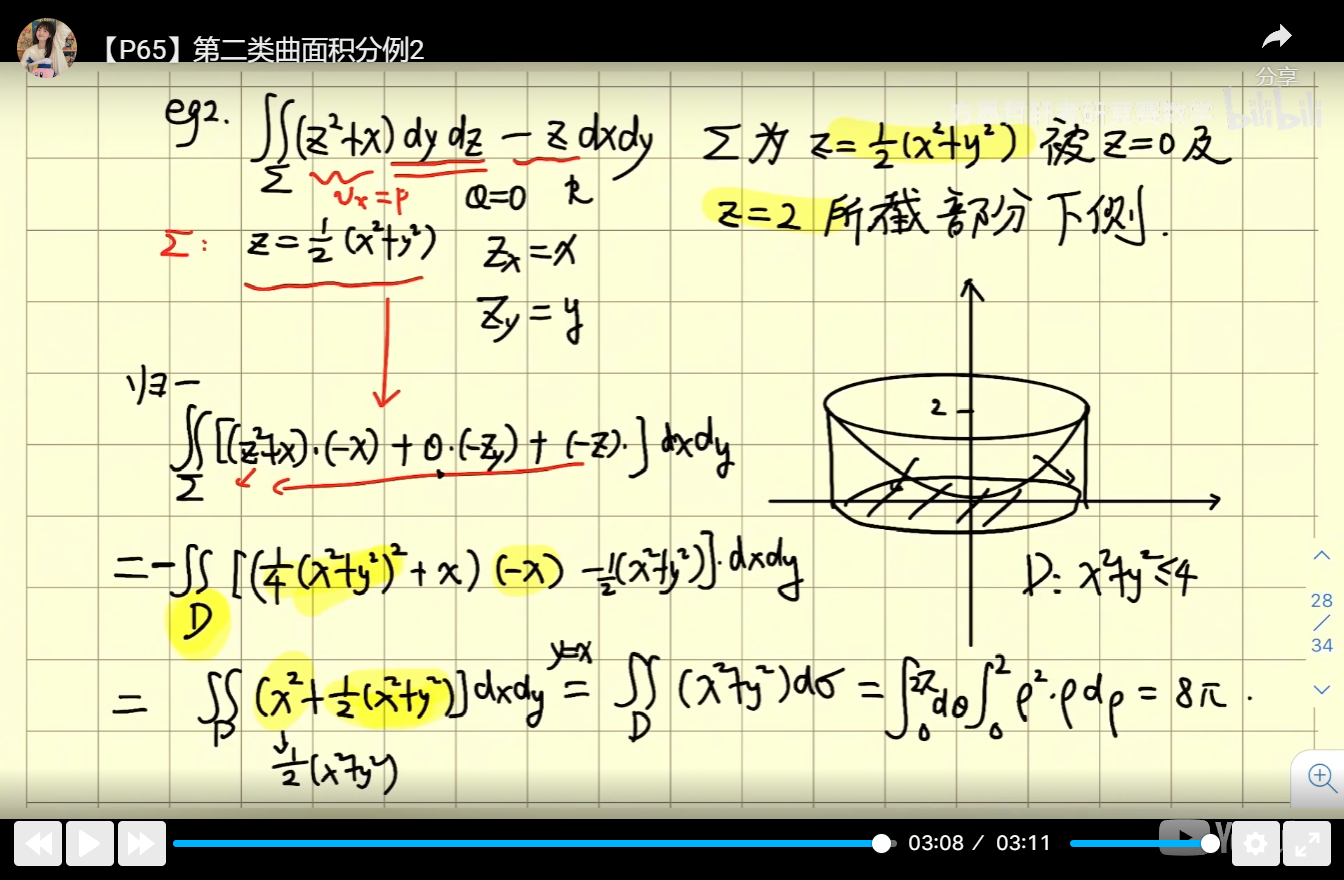 【P65】第二类曲面积分例2
分享
bilibili
eg2. ∬Σ (z²+x) dy dz − z dxdy Σ为 z=½(x²+y²) 被 z=0 及
=P Q=0 R z=2 所截部分下侧.
Σ: z=½(x²+y²) Zx=x
Zy=y
归一
2
∬Σ [(z²+x)·(-x) + 0·(-Zy) + (-z)·] dxdy
=-∬D [(¼(x²+y²)²+x)(-x) -½(x²+y²)]·dxdy D: x²+y²≤4
28
/
34
= ∬D (x²+½(x²+y²)]dxdy y=x = ∬D (x²+y²)dσ = ∫₀^2π dθ∫₀² ρ²·ρdρ = 8π.
½(x²+y²)
03:08 / 03:11